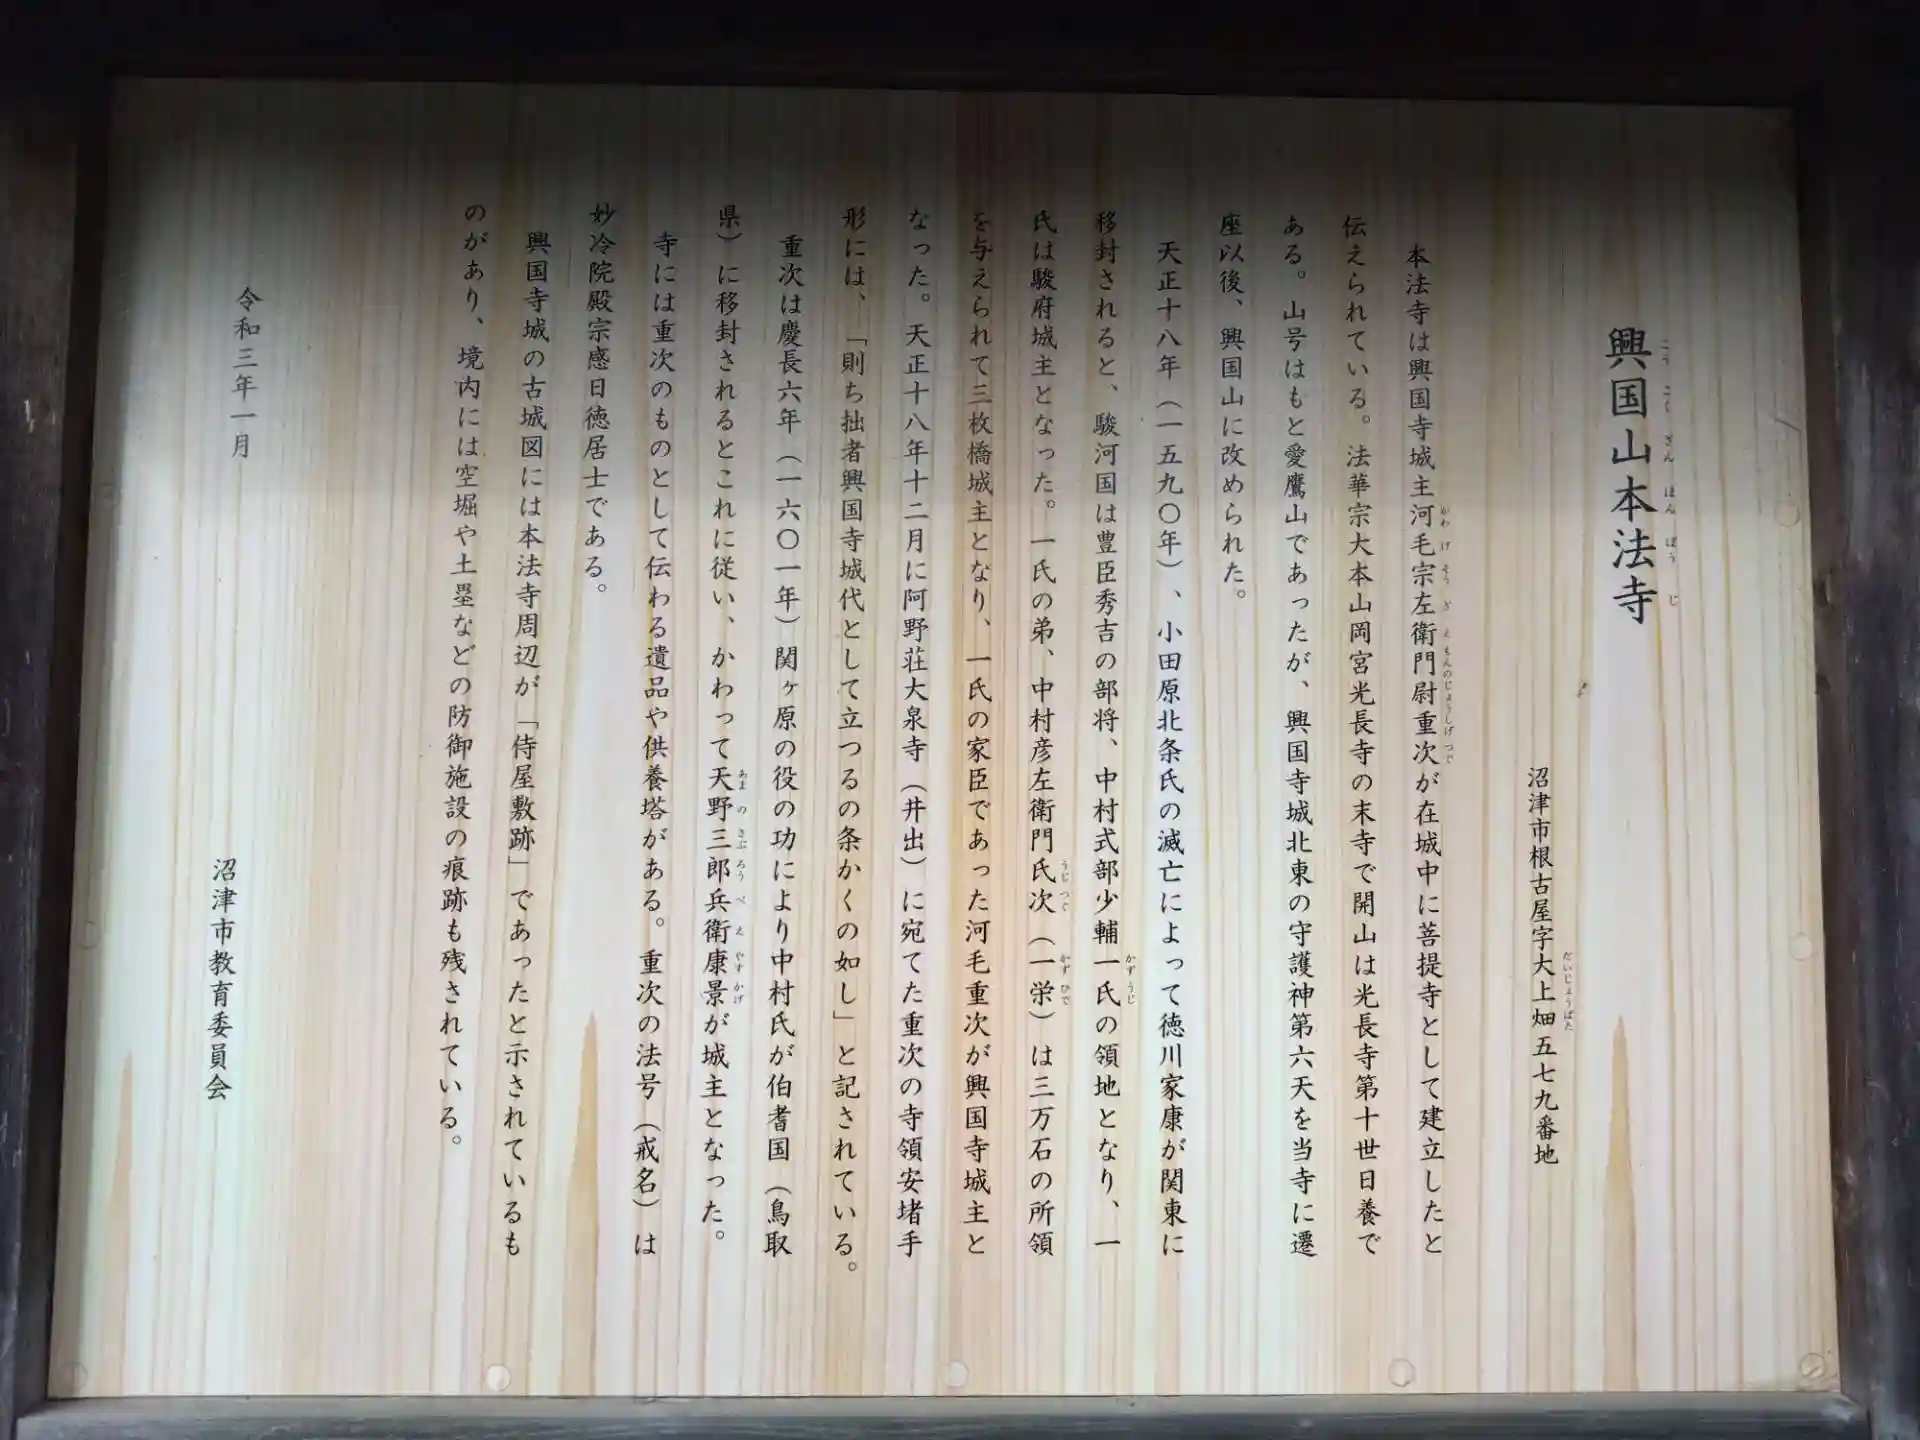 興国山本法寺
沼津市根古屋字大上畑五七九番地
本法寺は興国寺城主河毛宗左衛門尉重次が在城中に菩提寺として建立したと
伝えられている。法華宗大本山岡宮光長寺の末寺で開山は光長寺第十世日養で
ある。山号はもと愛鷹山であったが、興国寺城北東の守護神第六天を当寺に遷
座以後、興国山に改められた。
天正十八年（一五九〇年）、小田原北条氏の滅亡によって徳川家康が関東に
移封されると、駿河国は豊臣秀吉の部将、中村式部少輔一氏の領地となり、一
氏は駿府城主となった。一氏の弟、中村彦左衛門氏次（一栄）は三万石の所領
を与えられて三枚橋城主となり、一氏の家臣であった河毛重次が興国寺城主と
なった。天正十八年十二月に阿野荘大泉寺（井出）に宛てた重次の寺領安堵手
形には、「則ち拙者興国寺城代として立つるの条かくの如し」と記されている。
重次は慶長六年（一六〇一年）関ヶ原の役の功により中村氏が伯耆国（鳥取
県）に移封されるとこれに従い、かわって天野三郎兵衛康景が城主となった。
寺には重次のものとして伝わる遺品や供養塔がある。重次の法号（戒名）は
妙冷院殿宗感日徳居士である。
興国寺城の古城図には本法寺周辺が「侍屋敷跡」であったと示されているも
のがあり、境内には空堀や土塁などの防御施設の痕跡も残されている。
令和三年一月
沼津市教育委員会